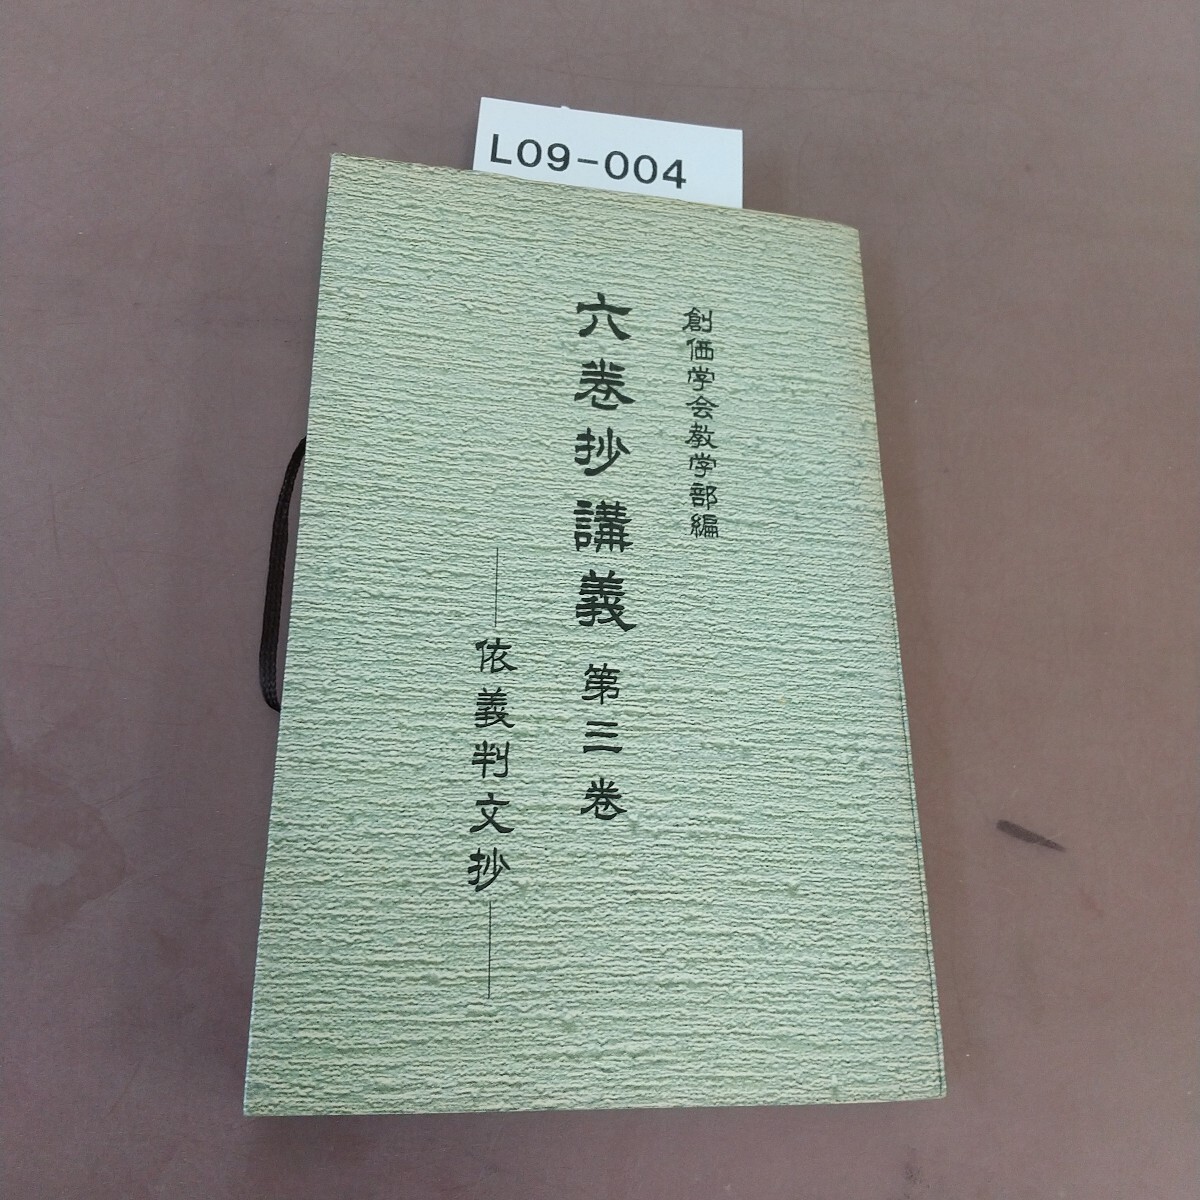 L09-004
創価学会教学部編
六巻抄講義 第三巻
依義判文抄